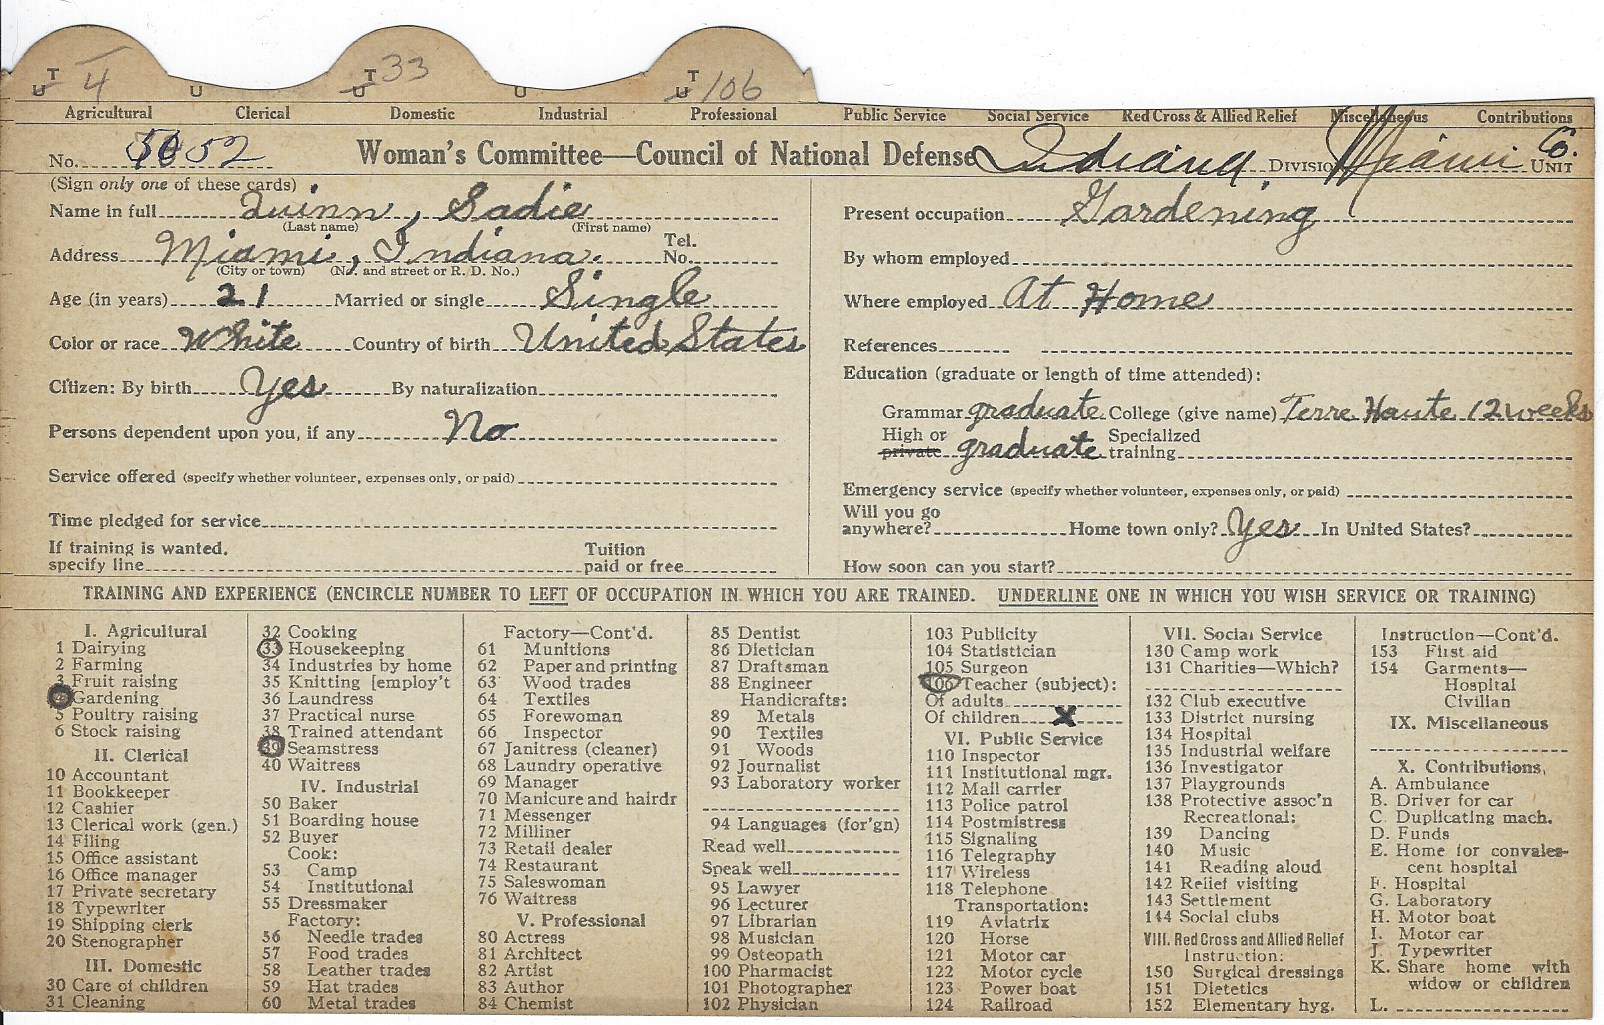 T U 4 U T U 33 U T U 106
Agricultural Clerical Domestic Industrial Professional Public Service Social Service Red Cross & Allied Relief Miscellaneous Contributions
No. 52 Woman's Committee—Council of National Defense Indiana DIVISION Miami Co. UNIT
(Sign only one of these cards)
Name in full Quinn, Sadie
(Last name) (First name)
Address Miami, Indiana. Tel. No.
(City or town) (No. and street or R. D. No.)
Age (in years) 21 Married or single Single
Color or race White Country of birth United States
Citizen: By birth Yes By naturalization
Persons dependent upon you, if any No
Service offered (specify whether volunteer, expenses only, or paid)
Time pledged for service
If training is wanted, specify line Tuition paid or free
Present occupation Gardening
By whom employed
Where employed At Home
References
Education (graduate or length of time attended):
Grammar graduate College (give name) Terre Haute 12 weeks
High or private graduate Specialized training
Emergency service (specify whether volunteer, expenses only, or paid)
Will you go anywhere? Home town only? Yes In United States?
How soon can you start?
TRAINING AND EXPERIENCE (ENCIRCLE NUMBER TO LEFT OF OCCUPATION IN WHICH YOU ARE TRAINED. UNDERLINE ONE IN WHICH YOU WISH SERVICE OR TRAINING)
I. Agricultural
1 Dairying
2 Farming
3 Fruit raising
4 Gardening
5 Poultry raising
6 Stock raising
II. Clerical
10 Accountant
11 Bookkeeper
12 Cashier
13 Clerical work (gen.)
14 Filing
15 Office assistant
16 Office manager
17 Private secretary
18 Typewriter
19 Shipping clerk
20 Stenographer
III. Domestic
30 Care of children
31 Cleaning
32 Cooking
33 Housekeeping
34 Industries by home
35 Knitting [employ't
36 Laundress
37 Practical nurse
38 Trained attendant
39 Seamstress
40 Waitress
IV. Industrial
50 Baker
51 Boarding house
52 Buyer
Cook:
53 Camp
54 Institutional
55 Dressmaker
Factory:
56 Needle trades
57 Food trades
58 Leather trades
59 Hat trades
60 Metal trades
Factory—Cont'd.
61 Munitions
62 Paper and printing
63 Wood trades
64 Textiles
65 Forewoman
66 Inspector
67 Janitress (cleaner)
68 Laundry operative
69 Manager
70 Manicure and hairdr
71 Messenger
72 Milliner
73 Retail dealer
74 Restaurant
75 Saleswoman
76 Waitress
V. Professional
80 Actress
81 Architect
82 Artist
83 Author
84 Chemist
85 Dentist
86 Dietician
87 Draftsman
88 Engineer
Handicrafts:
89 Metals
90 Textiles
91 Woods
92 Journalist
93 Laboratory worker
94 Languages (for'gn)
Read well
Speak well
95 Lawyer
96 Lecturer
97 Librarian
98 Musician
99 Osteopath
100 Pharmacist
101 Photographer
102 Physician
103 Publicity
104 Statistician
105 Surgeon
106 Teacher (subject):
Of adults
Of children X
VI. Public Service
110 Inspector
111 Institutional mgr.
112 Mail carrier
113 Police patrol
114 Postmistress
115 Signaling
116 Telegraphy
117 Wireless
118 Telephone
Transportation:
119 Aviatrix
120 Horse
121 Motor car
122 Motor cycle
123 Power boat
124 Railroad
VII. Social Service
130 Camp work
131 Charities—Which?
132 Club executive
133 District nursing
134 Hospital
135 Industrial welfare
136 Investigator
137 Playgrounds
138 Protective assoc'n
Recreational:
139 Dancing
140 Music
141 Reading aloud
142 Relief visiting
143 Settlement
144 Social clubs
VIII. Red Cross and Allied Relief
Instruction:
150 Surgical dressings
151 Dietetics
152 Elementary hyg.
Instruction—Cont'd.
153 First aid
154 Garments—
Hospital
Civilian
IX. Miscellaneous
X. Contributions,
A. Ambulance
B. Driver for car
C. Duplicating mach.
D. Funds
E. Home for convales-
cent hospital
F. Hospital
G. Laboratory
H. Motor boat
I. Motor car
J. Typewriter
K. Share home with
widow or children
L.